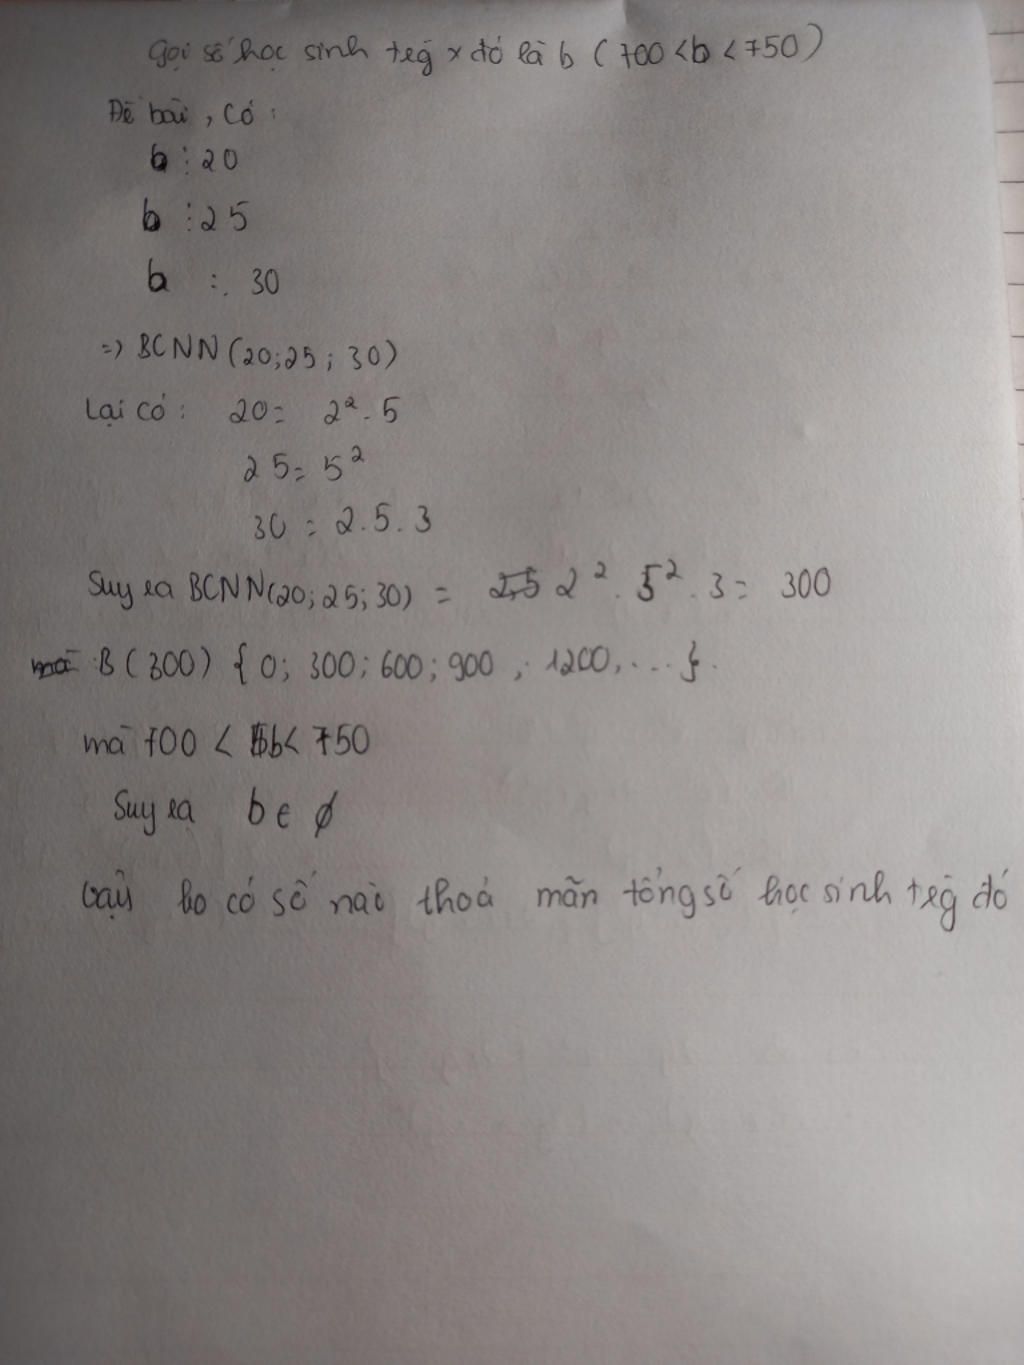 Gọi số học sinh trg x đó là b (700 < b < 750)
Đề bài, có:
b ⋮ 20
b ⋮ 25
b ⋮ 30
=> BCNN (20; 25; 30)
Lại có: 20 = 2² . 5
25 = 5²
30 = 2 . 5 . 3
Suy ra BCNN(20; 25; 30) = 2² . 5² . 3 = 300
B (300) { 0; 300; 600; 900; 1200, ... }.
mà 700 < b < 750
Suy ra b ∈ ∅
Vậy ko có số nào thoả mãn tổng số học sinh trg đó